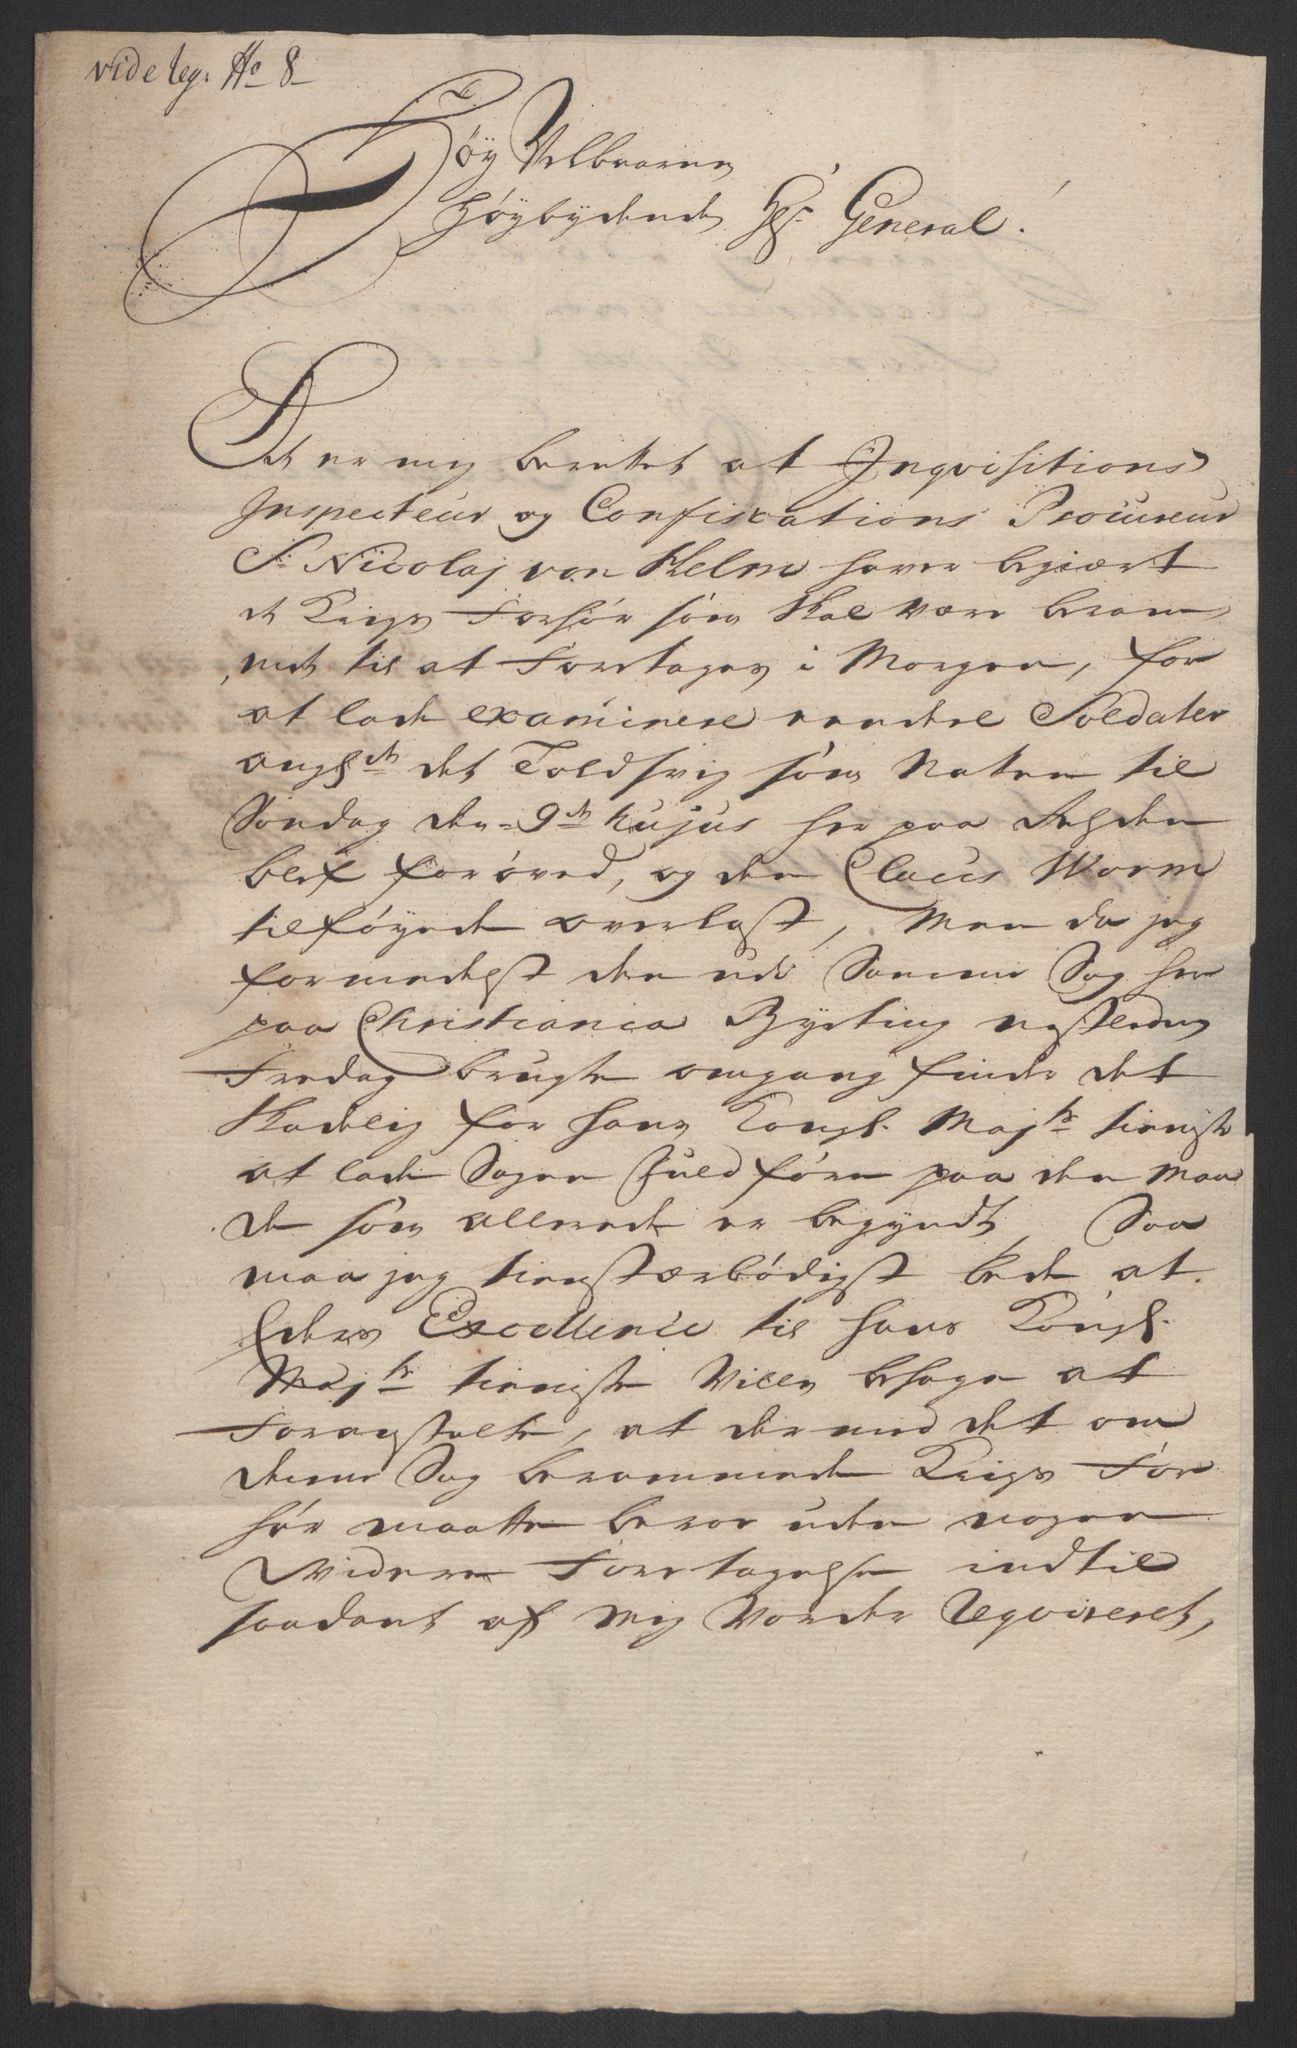 vide leg: No 8
Høy Velbaarne
Høybydende Hr: General!
Det er mig berettet at Inqvisitions
Inspecteur og Confiscations Procureur
Sr Nicolaj von Helm haver begiært
et Krigs Forhør som skal være beram,,
,,met til at Foretages i Morgen, for
at lade examinere eendeel Soldater
angl:de det Toldsvig som Naten til
Søndag den 9de hujus her paa Fæsten
blef forøved, og den Claus Worm
tilføyede overlast, Men da jeg
formedelst den udi Samme Sag her
paa Christiania Byeting nestleden
Fredag brugte omgang finder det
skadelig for Hans Kongl: Majts tieniste
at lade Sagen Fuldføre paa den Maa
de som allerede er begyndt, Saa
maa jeg tienstærbødigst bede at
Eders Excellence til Hans Kongl:
Majts tieniste Ville behage at
Foranstalte, at dermed det om
denne Sag berammede Krigs For
hør maatte beroe uden nogen
Widere Foretagelse indtil
saadant af mig Vorder Reqvireret,